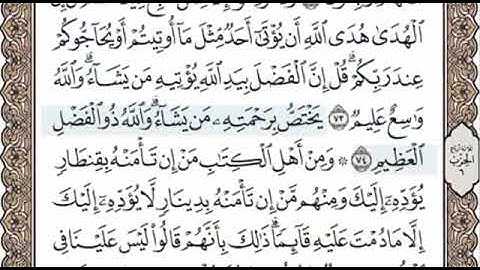 ٱلْهُدَىٰ هُدَى ٱللَّهِ أَن يُؤْتَىٰٓ أَحَدٌ مِّثْلَ مَآ أُوتِيتُمْ أَوْ يُحَآجُّوكُمْ
عِندَ رَبِّكُمْ ۗ قُلْ إِنَّ ٱلْفَضْلَ بِيَدِ ٱللَّهِ يُؤْتِيهِ مَن يَشَآءُ ۗ وَٱللَّهُ
وَٰسِعٌ عَلِيمٌ ﴿٧٣﴾ يَخْتَصُّ بِرَحْمَتِهِۦ مَن يَشَآءُ ۗ وَٱللَّهُ ذُو ٱلْفَضْلِ
ٱلْعَظِيمِ ﴿٧٤﴾ ۞ وَمِنْ أَهْلِ ٱلْكِتَٰبِ مَنْ إِن تَأْمَنْهُ بِقِنطَارٍ
يُؤَدِّهِۦٓ إِلَيْكَ وَمِنْهُم مَّنْ إِن تَأْمَنْهُ بِدِينَارٍ لَّا يُؤَدِّهِۦٓ إِلَيْكَ
إِلَّا مَا دُمْتَ عَلَيْهِ قَآئِمًا ۗ ذَٰلِكَ بِأَنَّهُمْ قَالُوا۟ لَيْسَ عَلَيْنَا فِى